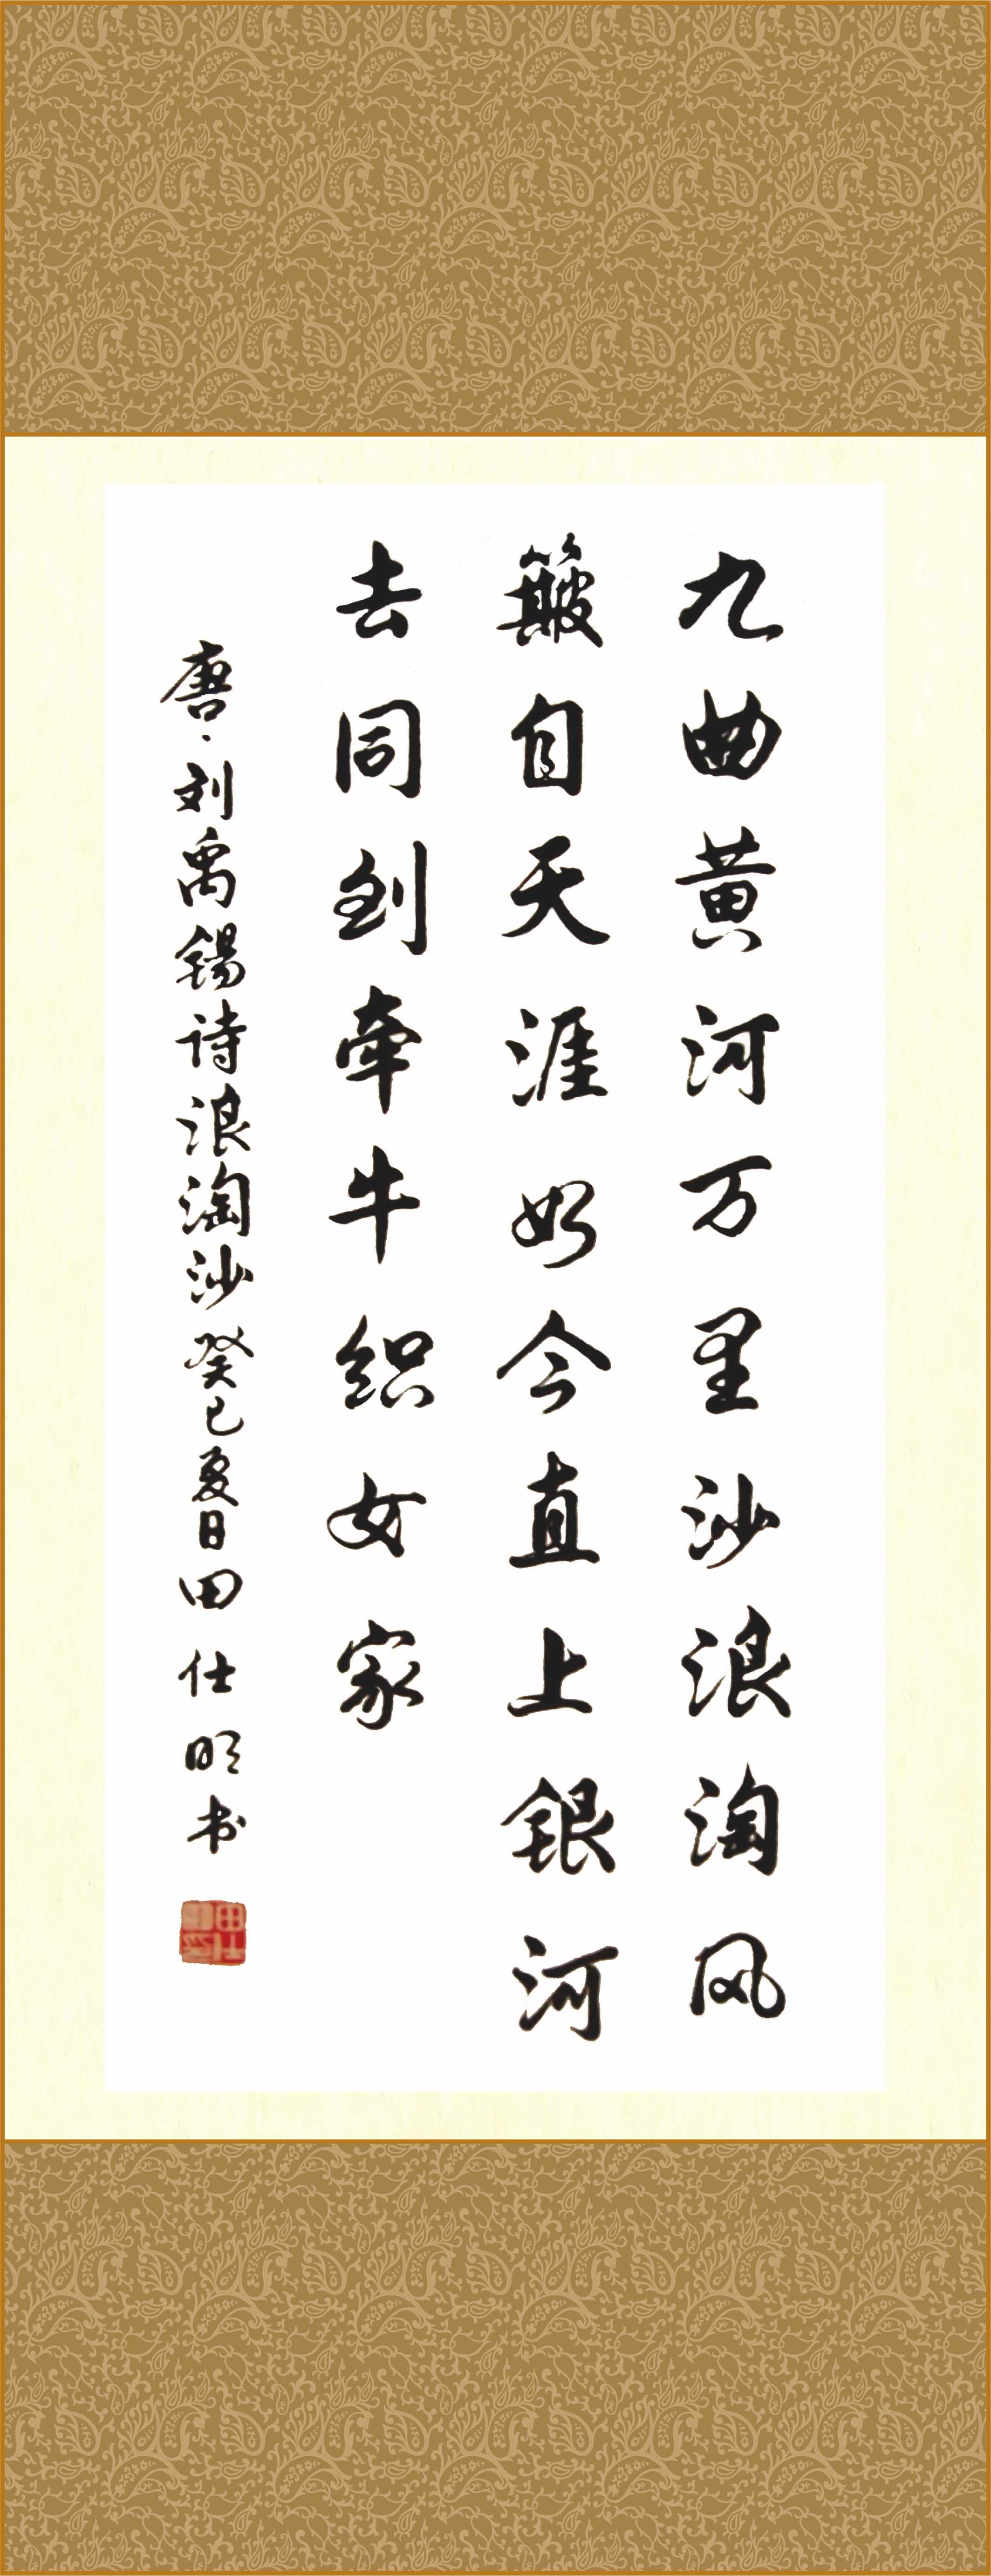 九曲黄河万里沙浪淘风
簸自天涯如今直上银河
去同到牵牛织女家
唐·刘禹锡诗浪淘沙癸巳夏日田仕明书